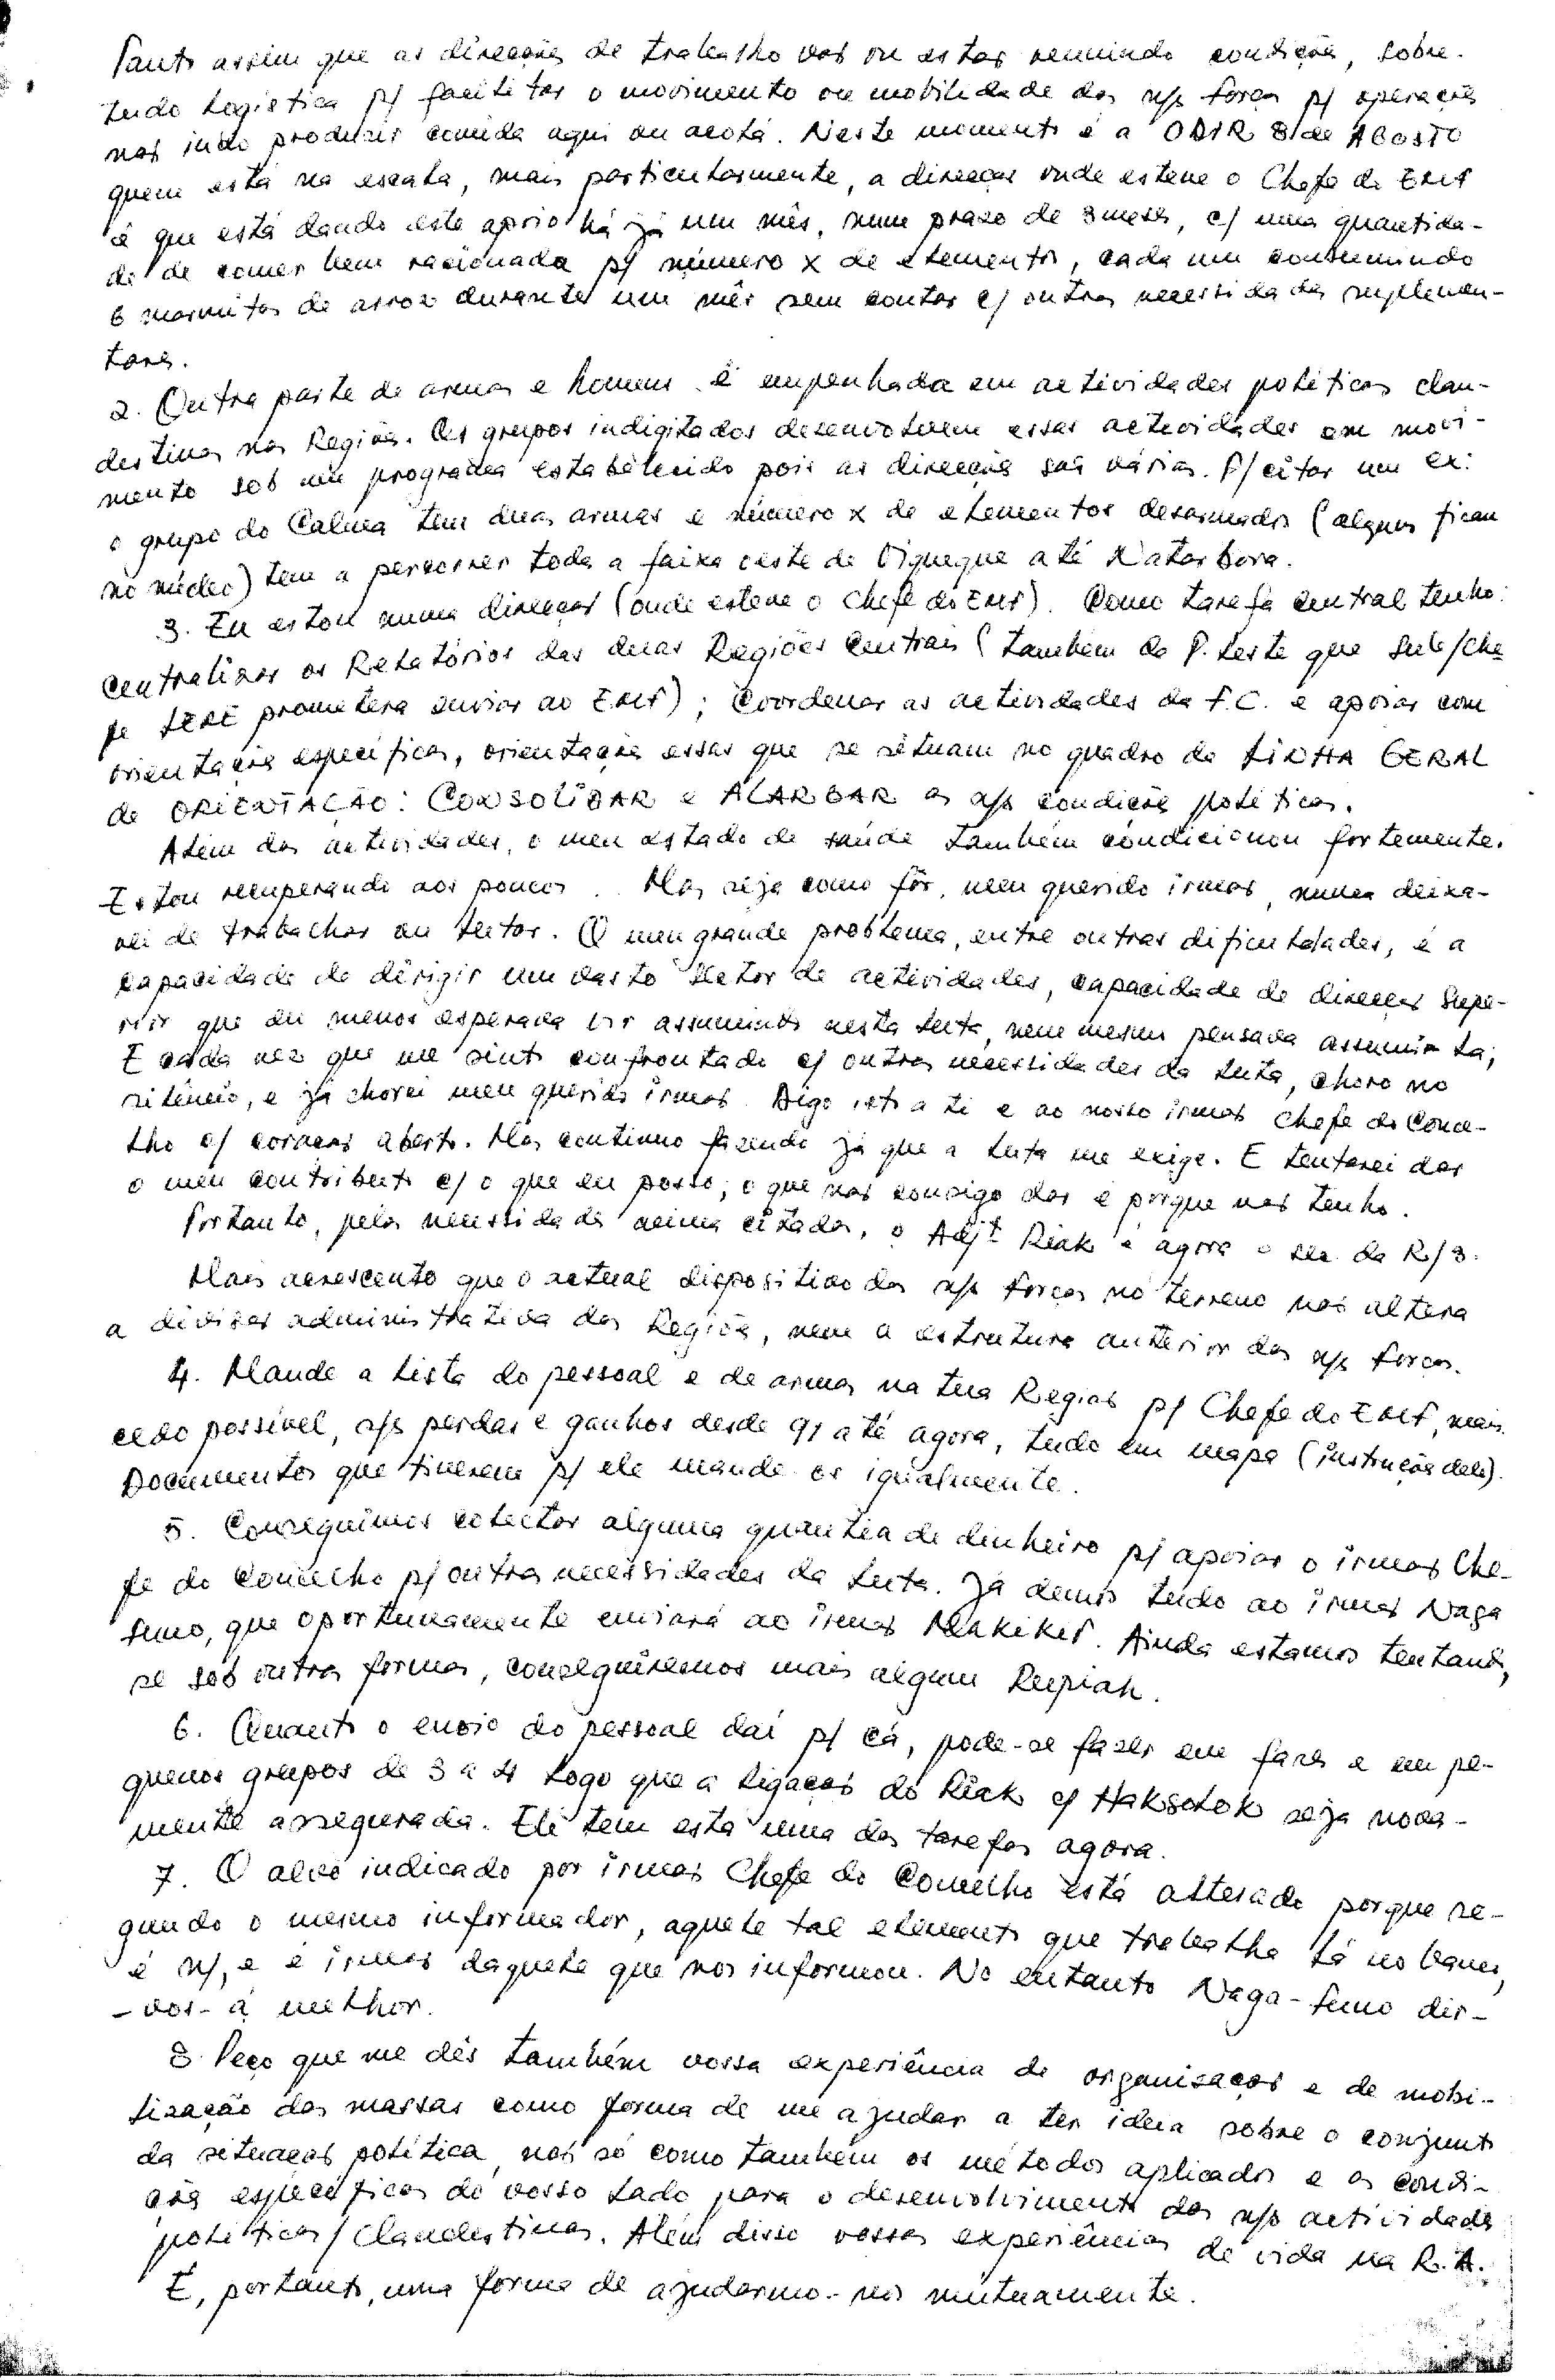 Tanto assim que as direcções de trabalho vão ou estão reunindo condições, sobre-
tudo logística p/ facilitar o movimento ou mobilidade das n/s forças p/ operações
não indo produzir comida aqui ou acolá. Neste momento é a ODIR 8/de AGOSTO
quem está na escala, mais particularmente, a direcção onde esteve o Chefe do EMF
é que está dando este apoio há já um mês, num prazo de 3 meses, c/ uma quantida-
de de comer bem racionada p/ número x de elementos, cada um consumindo
6 marmitas de arroz durante um mês sem contar c/ outras necessidades suplemen-
tares.
2. Outra parte de armas e homens é empenhada em actividades políticas clan-
destinas nas Regiões. Os grupos indigitados desenvolvem essas actividades em movi-
mento sob um programa estabelecido pois as direcções são várias. P/ citar um ex:
o grupo do Calma tem duas armas e número x de elementos desarmados (alguns ficam
no núcleo) tem a percorrer toda a faixa oeste de Viqueque até Natarbora.
3. Eu estou numa direcção (onde esteve o Chefe do EMF). Como tarefa central tenho:
Centralizar os Relatórios das duas Regiões Centrais (também da P. Leste que Sub/Che
fe LERE prometera enviar ao EMF); Coordenar as actividades da F.C. e apoiar com
orientações específicas, orientações essas que se situam no quadro da LINHA GERAL
de ORIENTAÇÃO: CONSOLIDAR e ALARGAR as n/s condições políticas.
Além das actividades, o meu estado de saúde também condicionou fortemente.
Estou recuperando aos poucos. Mas seja como fôr, meu querido irmão, nunca deixa-
rei de trabalhar ou lutar. O meu grande problema, entre outras dificuldades, é a
capacidade de dirigir um vasto sector de actividades, capacidade de direcção Supe-
rior que eu menos esperava vir assumindo nesta luta, nem mesmo pensava assumi-la;
E cada vez que me sinto confrontado c/ outras necessidades da luta, choro no
silêncio, e já chorei meu querido irmão. Digo isto a ti e ao nosso irmão Chefe do Conce-
lho c/ coração aberto. Mas continuo fazendo já que a luta me exige. E tentarei dar
o meu contributo c/ o que eu posso; o que não consigo dar é porque não tenho.
Portanto, pelas necessidades acima citadas, o Adjt Riak é agora o sec. da R/3.
Mais acrescento que o actual dispositivo das n/s forças no terreno não altera
a divisão administrativa das Regiões, nem a estrutura anterior das n/s forças.
4. Mande a lista do pessoal e de armas na tua Região p/ Chefe do EMF, mais
cedo possível, n/s perdas e ganhos desde 91 até agora, tudo em mapa (instruções dele).
Documentos que tiverem p/ ele mande-os igualmente.
5. Conseguimos colectar alguma quantia de dinheiro p/ apoiar o irmão Che-
fe do Concelho p/ outras necessidades da luta. Já demos tudo ao irmão Naga
Sumo, que oportunamente enviará ao irmão Makikit. Ainda estamos tentando,
se sob outras formas, conseguiremos mais algum Rupiah.
6. Quanto o envio do pessoal daí p/ cá, pode-se fazer em fases e em pe-
quenos grupos de 3 a 4 logo que a ligação do Riak c/ Haksolok seja nova-
mente assegurada. Ele tem esta uma das tarefas agora.
7. O alvo indicado por irmão Chefe do Concelho está alterado porque se-
gundo o mesmo informador, aquele tal elemento que trabalha lá no banco,
é n/, e é irmão daquele que nos informou. No entanto Naga-Sumo dir-
-vos-á melhor.
8. Peço que me dês também vossa experiência de organização e de mobi-
lização das massas como forma de me ajudar a ter ideia sobre o conjunto
da situação política, não só como também os métodos aplicados e as condi-
ções específicas do vosso lado para o desenvolvimento das n/s actividades
políticas/Clandestinas. Além disso vossas experiências de vida na R.A.
É, portanto, uma forma de ajudarmo-nos mutuamente.